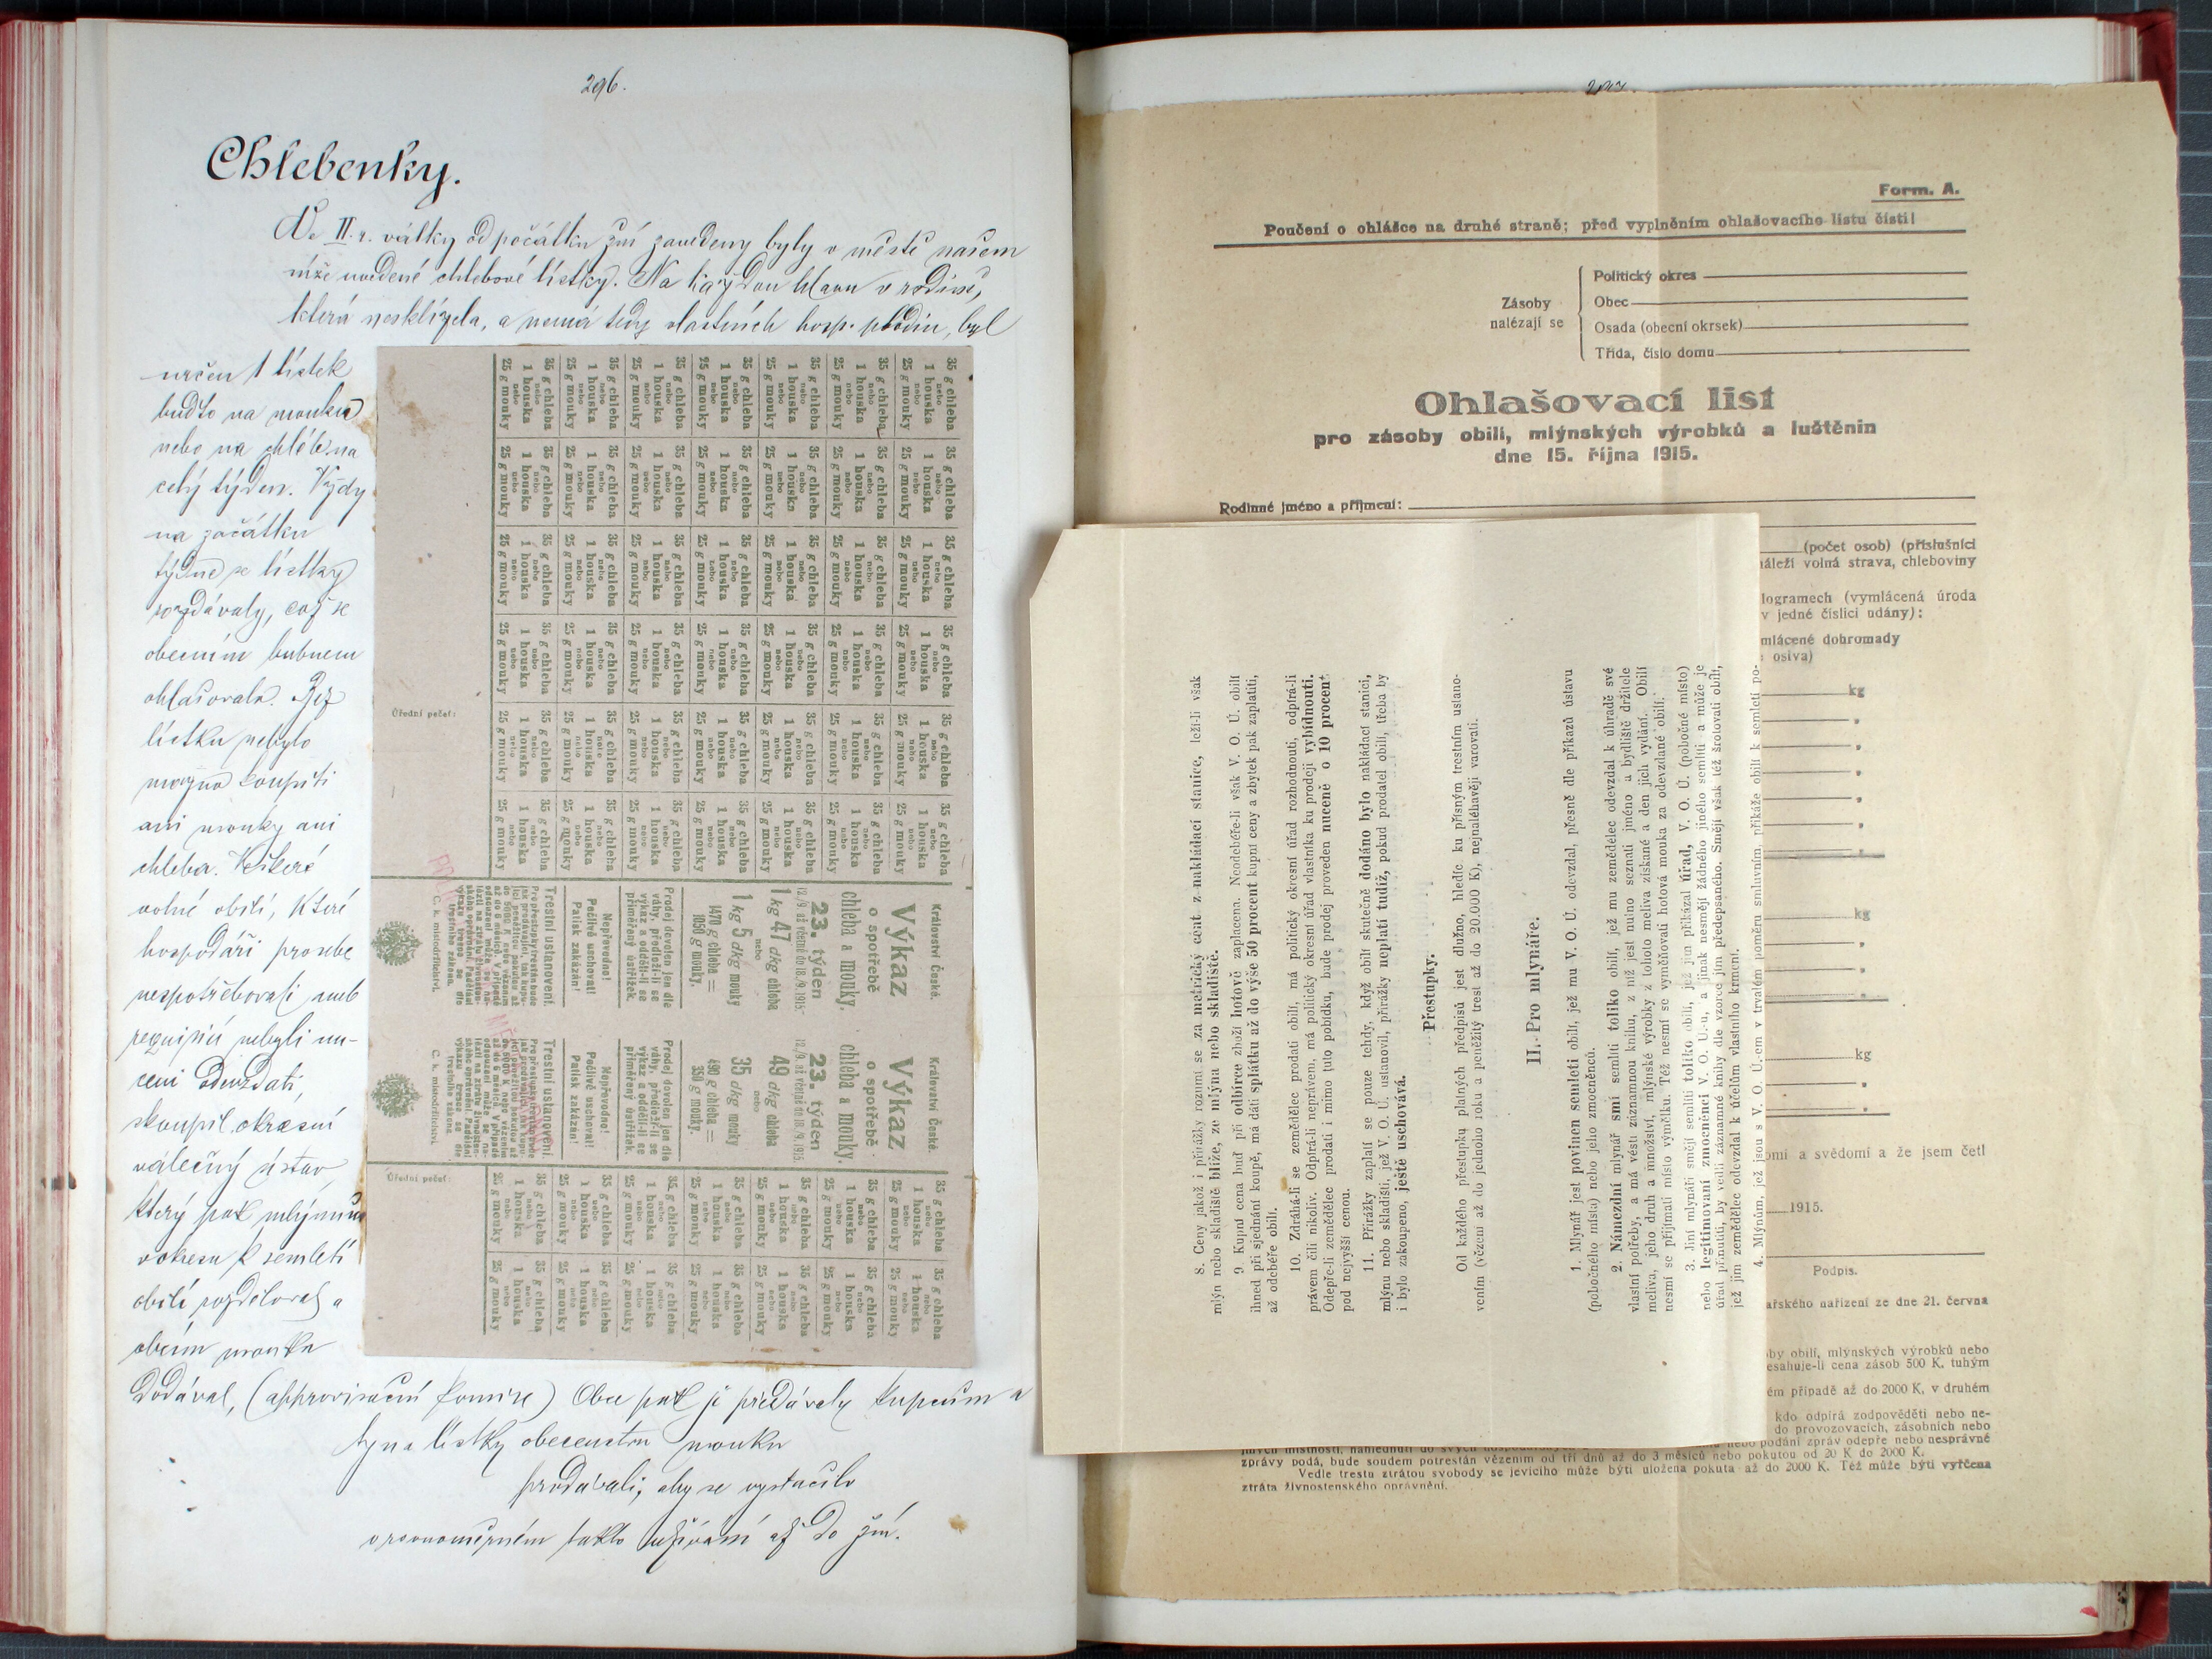 296.
Chlebenky.
Ve II. r. války od počátku žní zavedeny byly v městě našem
níže uvedené chlebové lístky. Na každou hlavu v rodině,
která nesklízela, a nemá tedy vlastních hosp. plodin, byl
určen 1 lístek
buďto na mouku
nebo na chléb na
celý týden. Vždy
na začátku
týdne se lístky
rozdávaly, což se
obecním bubnem
ohlašovalo. Bez
lístku nebylo
možno koupiti
ani mouky ani
chleba. Veškeré
volné obilí, které
hospodáři pro sebe
nespotřebovali aneb
requisicí nebyli nu-
ceni odevzdati,
skoupil okresní
válečný ústav,
který pak mlýnům
v okresu k semletí
obilí rozděloval a
obcím mouku
dodával, (approvisační komise) Obce pak je předávaly kupcům a
ty na lístky obecenstvu mouku
prodávali, aby se vystačilo
v rovnoměrném takto užívání až do žní.
35 g chleba
nebo
1 houska
nebo
25 g mouky
Úřední pečeť:
Království České.
Výkaz
o spotřebě
chleba a mouky.
23. týden
12./9. až včetně do 18./9. 1915.
1 kg 47 dkg chleba
nebo
1 kg 5 dkg mouky
1470 g chleba =
1050 g mouky.
Prodej dovolen jen dle
váhy, předloží-li se
výkaz a oddělí-li se
přiměřený ústřižek.
Nepřevodno!
Pečlivě uschovati!
Patisk zakázán!
Trestní ustanovení.
C. k. místodržitelství.
Království České.
Výkaz
o spotřebě
chleba a mouky.
23. týden
12./9. až včetně do 18./9. 1915.
49 dkg chleba
nebo
35 dkg mouky
490 g chleba =
350 g mouky.
Prodej dovolen jen dle
váhy, předloží-li se
výkaz a oddělí-li se
přiměřený ústřižek.
Nepřevodno!
Pečlivě uschovati!
Patisk zakázán!
Trestní ustanovení.
C. k. místodržitelství.
Úřední pečeť:
35 g chleba
nebo
1 houska
nebo
25 g mouky
Form. A.
Poučení o ohlášce na druhé straně; před vyplněním ohlašovacího listu čísti!
Zásoby
nalézají se
Politický okres
Obec
Osada (obecní okrsek)
Třída, číslo domu
Ohlašovací list
pro zásoby obilí, mlýnských výrobků a luštěnin
dne 15. října 1915.
Rodinné jméno a příjmení:
(počet osob) (příslušníci
náleží volná strava, chleboviny
logramech (vymlácená úroda
v jedné číslici udány):
mlácené dohromady
osiva)
kg
"
"
"
"
"
"
kg
"
"
"
kg
"
"
omí a svědomí a že jsem četl
1915.
Podpis.
ařského nařízení ze dne 21. června
by obilí, mlýnských výrobků nebo
esahuje-li cena zásob 500 K, tuhým
ém případě až do 2000 K, v druhém
kdo odpírá zodpověděti nebo ne-
do provozovacích, zásobních nebo
nebo podání zpráv odepře nebo nesprávné
zprávy podá, bude soudem potrestán vězením od tří dnů až do 3 měsíců nebo pokutou od 20 K do 2000 K.
Vedle trestu ztrátou svobody se jevícího může býti uložena pokuta až do 2000 K. Též může býti vyřčena
ztráta živnostenského oprávnění.
8. Ceny jakož i přirážky rozumí se za metrický cent z nakládací stanice, leží-li však
mlýn nebo skladiště blíže, ze mlýna nebo skladiště.
9. Kupní cena buď při odbírce zboží hotově zaplacena. Neodebéře-li však V. O. Ú. obilí
ihned při sjednání koupě, má dáti splátku až do výše 50 procent kupní ceny a zbytek pak zaplatiti,
až odebéře obilí.
10. Zdráhá-li se zemědělec prodati obilí, má politický okresní úřad rozhodnouti, odpírá-li
právem čili nikoliv. Odpírá-li neprávem, má politický okresní úřad vlastníka ku prodeji vybídnouti.
Odepře-li zemědělec prodati i mimo tuto pobídku, bude prodej proveden nuceně o 10 procent
pod nejvyšší cenou.
11. Přirážky zaplatí se pouze tehdy, když obilí skutečně dodáno bylo nakládací stanici,
mlýnu nebo skladišti, jež V. O. Ú. ustanovil, přirážky neplatí tudíž, pokud prodatel obilí, třeba by
i bylo zakoupeno, ještě uschovává.
Přestupky.
Od každého přestupku platných předpisů jest dlužno, hledíc ku přísným trestním ustano-
vením (vězení až do jednoho roku a peněžitý trest až do 20.000 K), nejnaléhavěji varovati.
II. Pro mlynáře.
1. Mlynář jest povinen semleti obilí, jež mu V. O. Ú. odevzdal, přesně dle příkazů ústavu
(pobočného místa) nebo jeho zmocněnců.
2. Námezdní mlynář smí semlíti toliko obilí, jež mu zemědělec odevzdal k úhradě své
vlastní potřeby, a má vésti záznamnou knihu, z níž jest nutno seznati jméno a bydliště držitele
meliva, jeho druh a množství, mlýnské výrobky z tohoto meliva získané a den jich vydání. Obilí
nesmí se přijímati místo výmělku. Též nesmí se vyměňovati hotová mouka za odevzdané obilí.
3. Jiní mlynáři smějí semlíti toliko obilí, jež jim přikázal úřad, V. O. Ú. (pobočné místo)
nebo legitimovaní zmocněnci V. O. Ú-u, a jinak nesmějí žádného jiného semlíti a může je
úřad přinutiti, by vedli záznamné knihy dle vzorce jim předepsaného. Smějí však též šrotovati obilí,
jež jim zemědělec odevzdal k účelům vlastního krmení.
4. Mlýnům, jež jsou s V. O. Ú.-em v trvalém poměru smluvním, přikáže obilí k semletí po-